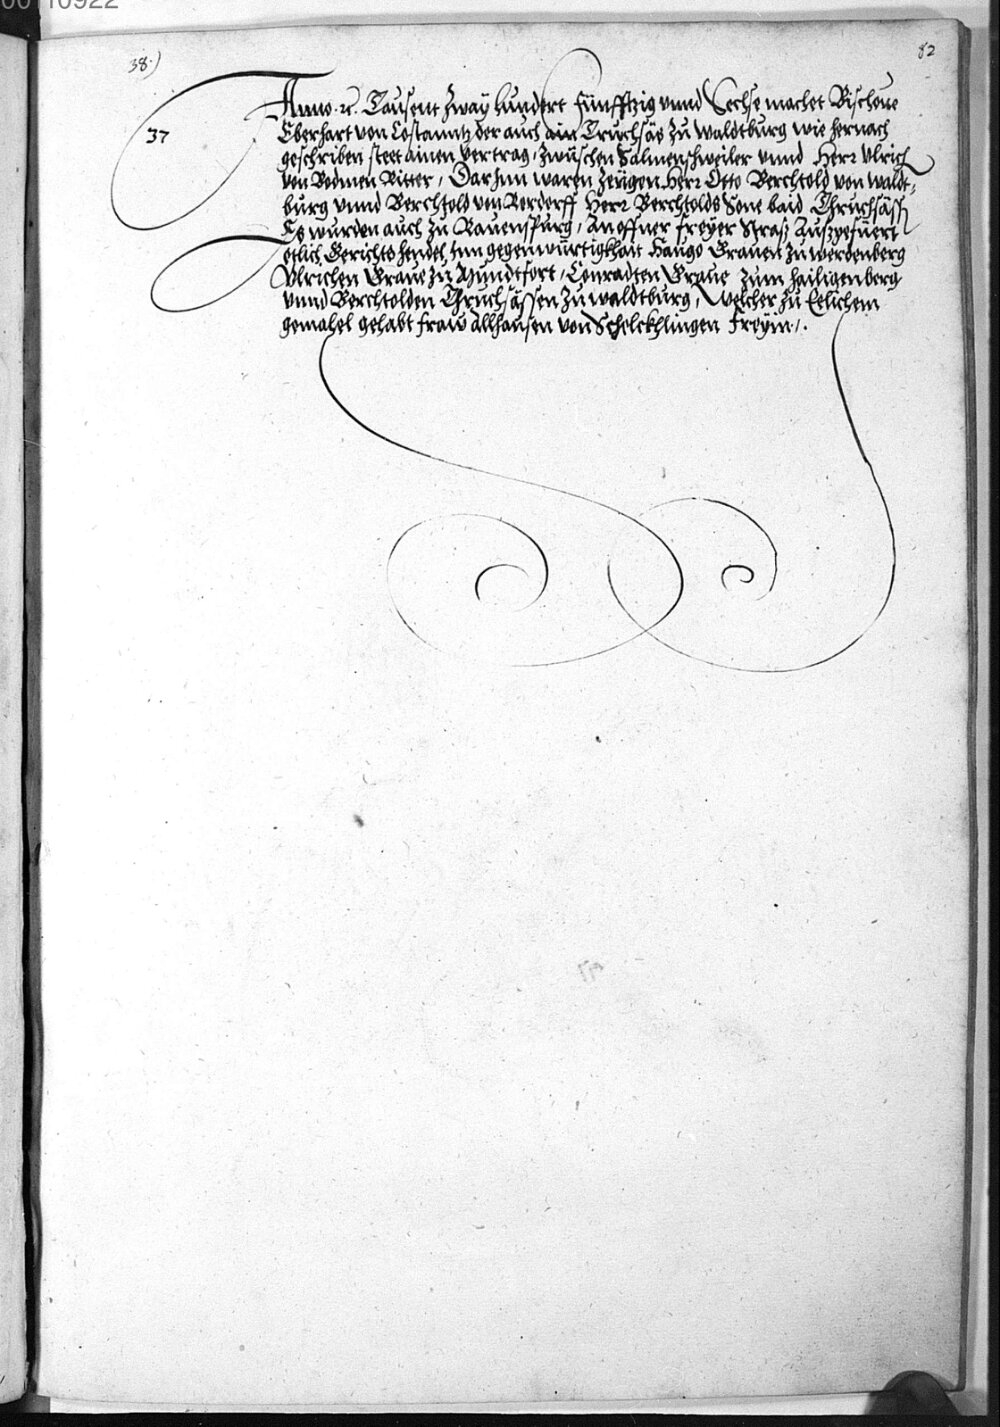 00110922
38.)
82
37
Anno. rc. Tausent Zway hundert Fünfftzig vnnd Sechse machet Bischoue
Eberhart von Costanntz der auch ain Truchsäs zu Waldtburg wie hernach
geschriben steet ainen vertrag, Zwüschen Salmenschweiler vnnd Herr Vlrich
von Bodmen Ritter, Darjnn waren Zeügen Herr Otto Berchtold von Waldt-
burg vnnd Berchtold von Rerdorff Herr Berchtolds Sone baid Thruchsäss
Es wurden auch zu Rauenspurg, An offner freyer Straß Außgefüert
etlich Gerichts hendel, Inn gegenwürtigkhait Haugo Grauen zu Werdenberg
Vlrichen Graue zu Mundtfort, Conradten Graue zum hailigenberg
vnnd Berchtolden Thruchsässen zu Waldtburg, Welcher zu Eelichem
gemahel gehabt fraw Allhausen von Schelckhlingen Freyin,.